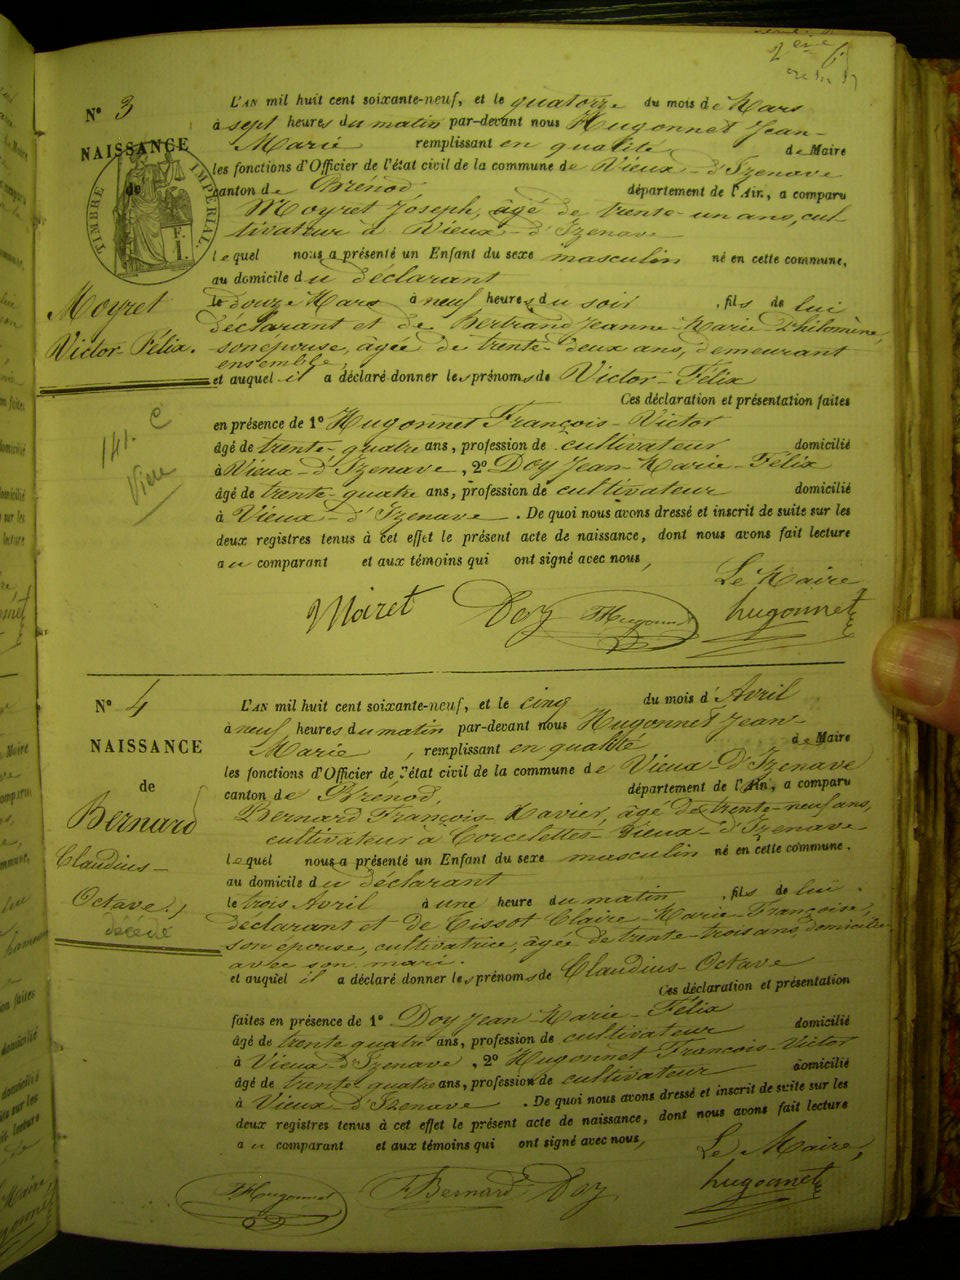 2ème
N° 3
NAISSANCE
de
TIMBRE IMPÉRIAL.
Moyret
Victor-Félix.
L'AN mil huit cent soixante-neuf, et le quatorze du mois de Mars
à sept heures du matin par-devant nous Hugonnet Jean-
Marie remplissant en qualité de Maire
les fonctions d'Officier de l'état civil de la commune de Vieux-d'Izenave
canton de Brénod département de l'Ain, a comparu
Moyret Joseph, âgé de trente-un ans, cul-
tivateur à Vieux-d'Izenave
lequel nous a présenté un Enfant du sexe masculin né en cette commune,
au domicile du déclarant
le douze Mars à neuf heures du soir, fils de lui
déclarant et de Bertrand Jeanne-Marie-Philomène,
son épouse, âgée de trente-deux ans, demeurant
ensemble;
et auquel il a déclaré donner les prénoms de Victor-Félix
Ces déclaration et présentation faites
en présence de 1° Hugonnet François-Victor
âgé de trente-quatre ans, profession de cultivateur domicilié
à Vieux-d'Izenave, 2° Doy Jean-Marie-Félix
âgé de trente-quatre ans, profession de cultivateur domicilié
à Vieux-d'Izenave. De quoi nous avons dressé et inscrit de suite sur les
deux registres tenus à cet effet le présent acte de naissance, dont nous avons fait lecture
au comparant et aux témoins qui ont signé avec nous,
141. C
Le Maire
Moiret Doy FHugonnet hugonnet
N° 4
NAISSANCE
de
Bernard
Claudius-
Octave.
décédé
L'AN mil huit cent soixante-neuf, et le cinq du mois d'Avril
à neuf heures du matin par-devant nous Hugonnet Jean-
Marie, remplissant en qualité de Maire
les fonctions d'Officier de l'état civil de la commune de Vieux-d'Izenave
canton de Brénod, département de l'Ain, a comparu
Bernard François-Xavier, âgé de trente-neuf ans,
cultivateur à Corcelettes-Vieux-d'Izenave
lequel nous a présenté un Enfant du sexe masculin né en cette commune.
au domicile du déclarant
le trois Avril à une heure du matin, fils de lui
déclarant et de Tissot Claire-Marie-Françoise,
son épouse, cultivatrice, âgée de trente-trois ans, domiciliée
avec son mari.
et auquel il a déclaré donner les prénoms de Claudius-Octave
Ces déclaration et présentation
faites en présence de 1° Doy Jean-Marie-Félix
âgé de trente quatre ans, profession de cultivateur domicilié
à Vieux-d'Izenave, 2° Hugonnet François-Victor
âgé de trente quatre ans, profession de cultivateur domicilié
à Vieux-d'Izenave. De quoi nous avons dressé et inscrit de suite sur les
deux registres tenus à cet effet le présent acte de naissance, dont nous avons fait lecture
au comparant et aux témoins qui ont signé avec nous,
Le Maire,
FHugonnet FBernard Doy hugonnet